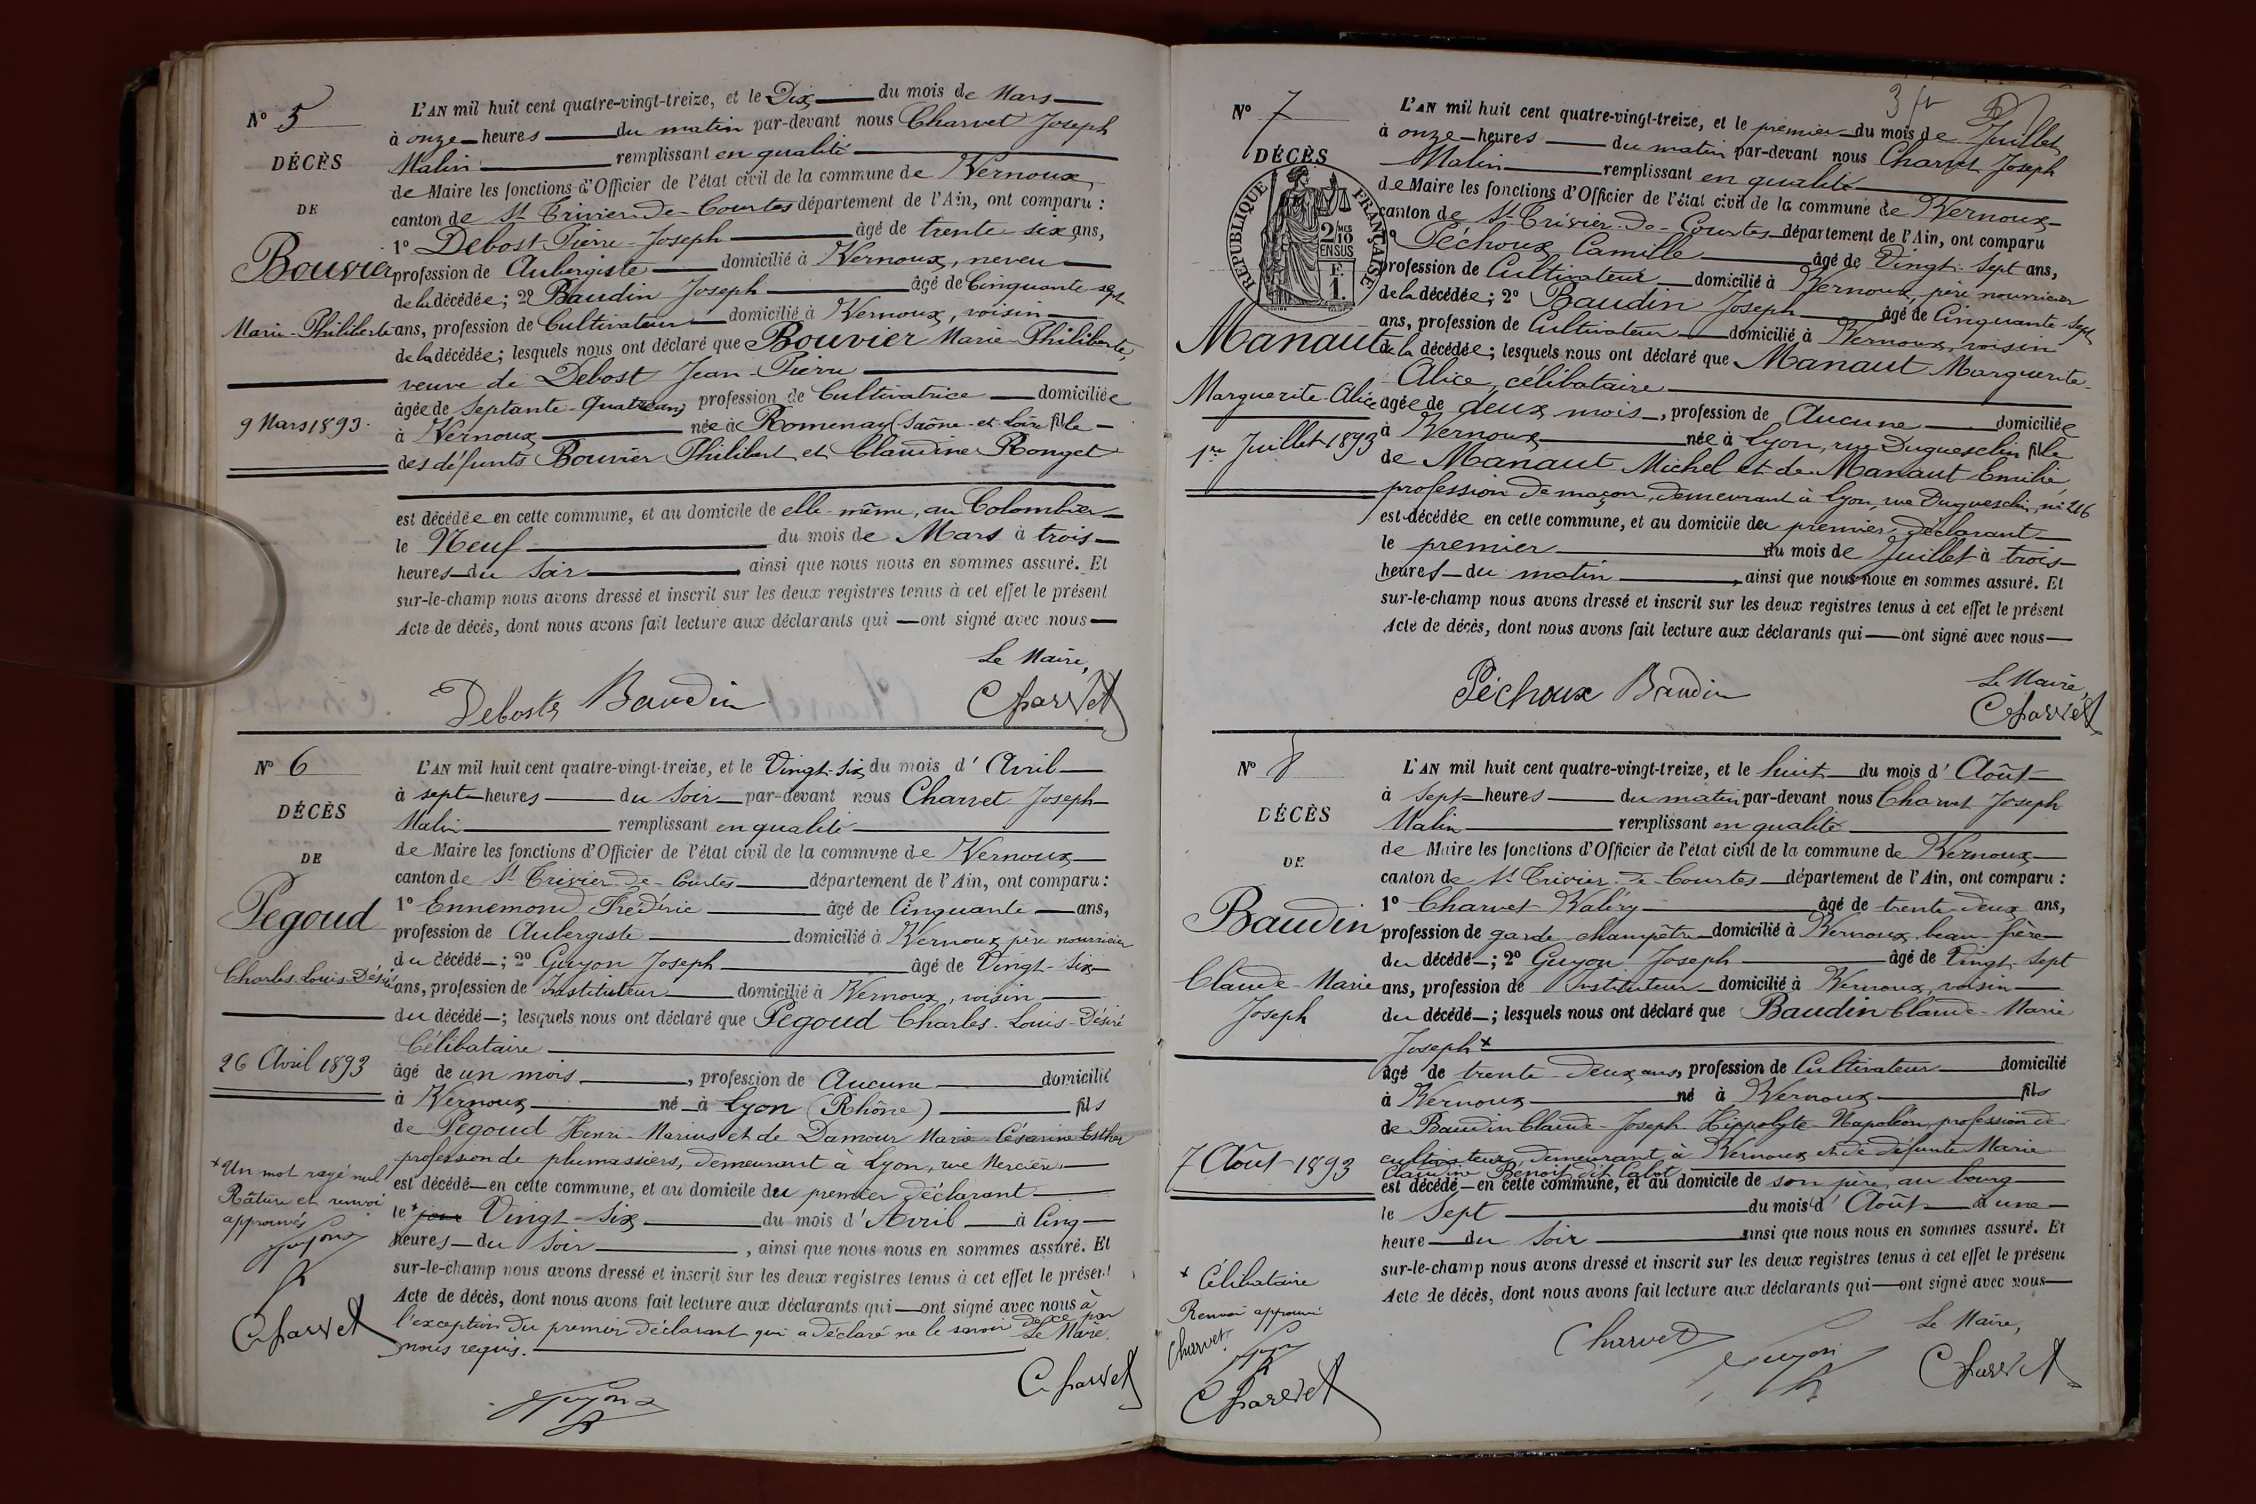 N° 5
DÉCÈS
DE
Bouvier
Marie-Philiberte
9 Mars 1893.
L'AN mil huit cent quatre-vingt-treize, et le Dix du mois de Mars
à onze heures du matin par-devant nous Charvet Joseph
Malin remplissant en qualité
de Maire les fonctions d'Officier de l'état civil de la commune de Vernoux
canton de St Trivier-de-Courtes département de l'Ain, ont comparu :
1° Debost Pierre-Joseph âgé de trente-six ans,
profession de Aubergiste domicilié à Vernoux, neveu
de la décédée ; 2° Baudin Joseph âgé de Cinquante-sept
ans, profession de Cultivateur domicilié à Vernoux, voisin
de la décédée ; lesquels nous ont déclaré que Bouvier Marie-Philiberte,
veuve de Debost Jean-Pierre
âgée de Septante-Quatre ans profession de Cultivatrice domiciliée
à Vernoux née à Romenay (Saône-et-Loire fille
des défunts Bouvier Philibert et Claudine Ronget
est décédée en cette commune, et au domicile de elle-même, au Colombier
le Neuf du mois de Mars à trois
heures du soir ainsi que nous nous en sommes assuré. Et
sur-le-champ nous avons dressé et inscrit sur les deux registres tenus à cet effet le présent
Acte de décès, dont nous avons fait lecture aux déclarants qui ont signé avec nous
Le Maire,
Debost Baudin Charvet
N° 6
DÉCÈS
DE
Pegoud
Charles-Louis-Désiré
26 Avril 1893
* Un mot rayé nul
Râture et renvoi
approuvés
Guyon
Charvet
L'AN mil huit cent quatre-vingt-treize, et le Vingt-six du mois d'Avril
à sept heures du soir par-devant nous Charvet Joseph
Malin remplissant en qualité
de Maire les fonctions d'Officier de l'état civil de la commune de Vernoux
canton de St Trivier-de-Courtes département de l'Ain, ont comparu :
1° Ennemond Frédéric âgé de Cinquante ans,
profession de Aubergiste domicilié à Vernoux père nourricier
du décédé ; 2° Guyon Joseph âgé de Vingt-six
ans, profession de instituteur domicilié à Vernoux, voisin
du décédé ; lesquels nous ont déclaré que Pegoud Charles-Louis-Désiré
Célibataire
âgé de un mois, profession de Aucune domicilié
à Vernoux né à Lyon (Rhône) fils
de Pegoud Henri-Marius et de Damour Marie-Césarine-Esther
profession de plumassiers, demeurant à Lyon, rue Mercière
est décédé en cette commune, et au domicile du premier déclarant
le * jour Vingt-six du mois d'Avril à Cinq
heures du soir, ainsi que nous nous en sommes assuré. Et
sur-le-champ nous avons dressé et inscrit sur les deux registres tenus à cet effet le présent
Acte de décès, dont nous avons fait lecture aux déclarants qui ont signé avec nous à
l'exception du premier déclarant qui a déclaré ne le savoir de ce par
nous requis. Le Maire.
Guyon Charvet
3
N° 7
DÉCÈS
RÉPUBLIQUE FRANÇAISE
2 MES
10
EN SUS
F.
1.
Manaut
Marguerite-Alice
1er Juillet 1893
L'AN mil huit cent quatre-vingt-treize, et le premier du mois de Juillet
à onze heures du matin par-devant nous Charvet Joseph
Malin remplissant en qualité
de Maire les fonctions d'Officier de l'état civil de la commune de Vernoux
canton de St Trivier-de-Courtes département de l'Ain, ont comparu
1° Péchoux Camille âgé de Vingt-sept ans,
profession de Cultivateur domicilié à Vernoux, père nourricier
de la décédée ; 2° Baudin Joseph âgé de Cinquante-sept
ans, profession de Cultivateur domicilié à Vernoux, voisin
de la décédée ; lesquels nous ont déclaré que Manaut Marguerite-
Alice, célibataire
âgée de deux mois, profession de Aucune domiciliée
à Vernoux née à Lyon, rue Duguesclin fille
de Manaut Michel et de Manaut Emilie,
profession de maçon, demeurant à Lyon, rue Duguesclin, n° 216
est décédée en cette commune, et au domicile du premier déclarant
le premier du mois de Juillet à trois
heures du matin, ainsi que nous nous en sommes assuré. Et
sur-le-champ nous avons dressé et inscrit sur les deux registres tenus à cet effet le présent
Acte de décès, dont nous avons fait lecture aux déclarants qui ont signé avec nous
Le Maire,
Péchoux Baudin Charvet
N° 8
DÉCÈS
DE
Baudin
Claude-Marie
Joseph
7 Août 1893
* Célibataire
Renvoi approuvé
Charvet
Guyon
Charvet
L'AN mil huit cent quatre-vingt-treize, et le huit du mois d'Août
à Sept heures du matin par-devant nous Charvet Joseph
Malin remplissant en qualité
de Maire les fonctions d'Officier de l'état civil de la commune de Vernoux
canton de St Trivier-de-Courtes département de l'Ain, ont comparu :
1° Charvet Valéry âgé de trente-deux ans,
profession de garde-champêtre domicilié à Vernoux, beau-frère
du décédé ; 2° Guyon Joseph âgé de Vingt-sept
ans, profession de Instituteur domicilié à Vernoux, voisin
du décédé ; lesquels nous ont déclaré que Baudin Claude-Marie
Joseph *
âgé de trente-deux ans, profession de Cultivateur domicilié
à Vernoux né à Vernoux fils
de Baudin Claude-Joseph-Hippolyte-Napoléon, profession de
cultivateur, demeurant à Vernoux et de défunte Marie
Claudine Benoit dit Cabot
est décédé en cette commune, et au domicile de son père au bourg
le Sept du mois d'Août à une
heure du soir ainsi que nous nous en sommes assuré. Et
sur-le-champ nous avons dressé et inscrit sur les deux registres tenus à cet effet le présent
Acte de décès, dont nous avons fait lecture aux déclarants qui ont signé avec nous
Le Maire,
Charvet Guyon Charvet